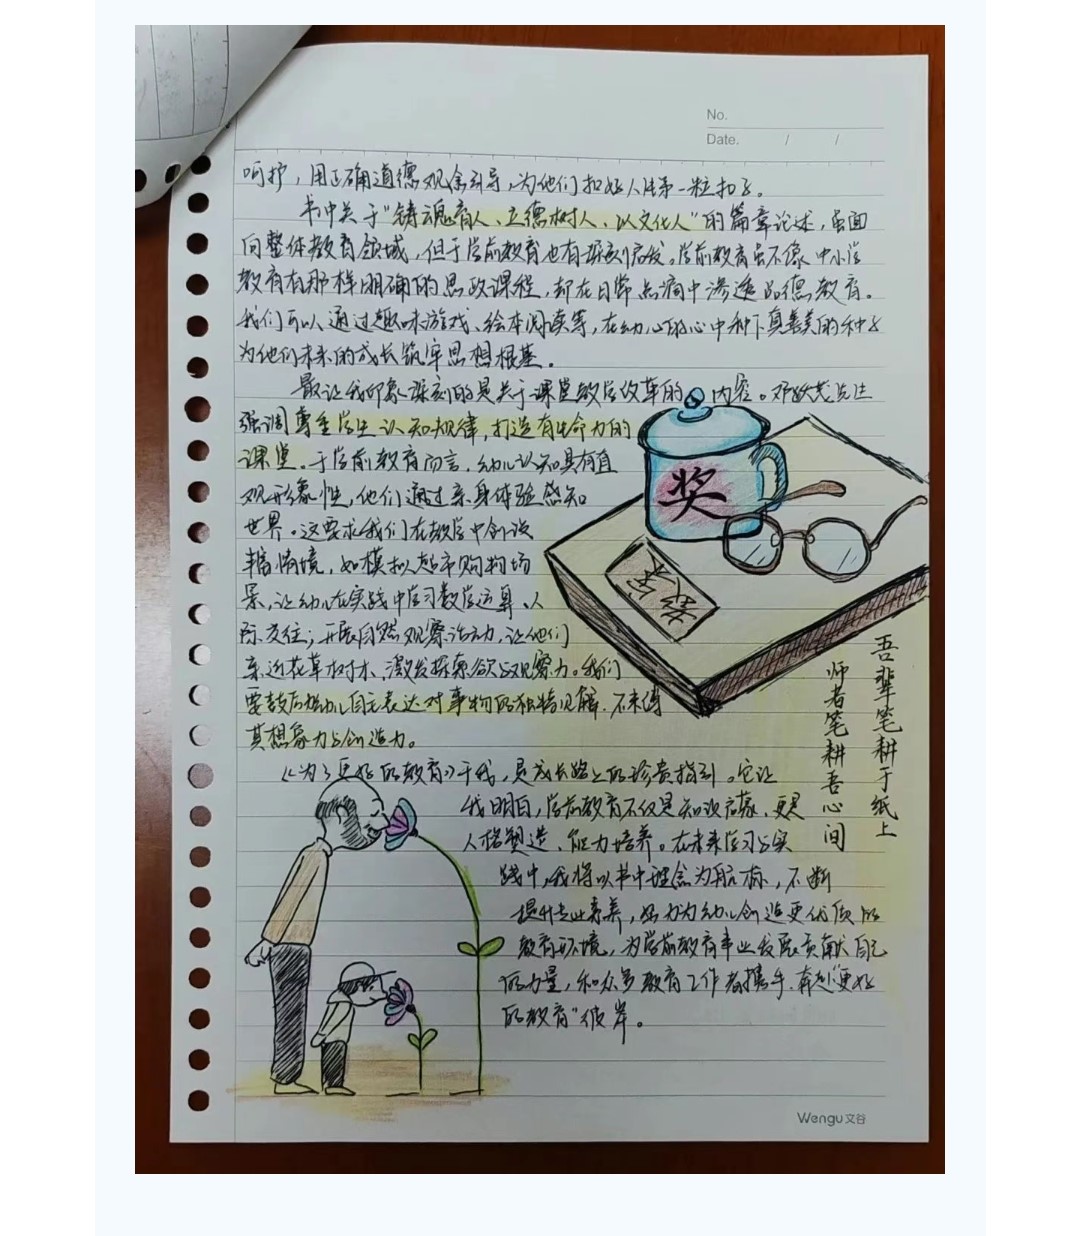 No.
Date. / /
呵护，用正确道德观念引导，为他们扣好人生第一粒扣子。
书中关于“铸魂育人、立德树人、以文化人”的篇章论述，虽面
向整体教育领域，但于学前教育也有深刻启发。学前教育虽不像中小学
教育有那样明确的思政课程，却在日常点滴中渗透品德教育。
我们可以通过趣味游戏、绘本阅读等，在幼儿的心中种下真善美的种子
为他们未来的成长筑牢思想根基。
最让我印象深刻的是关于课堂教学改革的内容。邓跃茂先生
强调尊重学生认知规律，打造有生命力的
课堂。于学前教育而言，幼儿认知具有直
观形象性，他们通过亲身体验感知
世界。这要求我们在教学中创设
丰富情境，如模拟超市购物场
景，让幼儿在实践中学习数学运算、人
际交往；开展自然观察活动，让他们
亲近花草树木、激发探索欲与观察力。我们
要鼓励幼儿自主表达对事物的独特见解，不束缚
其想象力与创造力。
《为了更好的教育》于我，是成长路上的珍贵指引。它让
我明白，学前教育不仅是知识启蒙，更是
人格塑造、能力培养。在未来学习与实
践中，我将以书中理念为航标，不断
提升专业素养，努力为幼儿创造更优质的
教育环境，为学前教育事业发展贡献自己
的力量，和众多教育工作者携手，奔赴“更好
的教育”彼岸。
奖
吾辈笔耕于纸上
师者笔耕吾心间
Wengu文谷